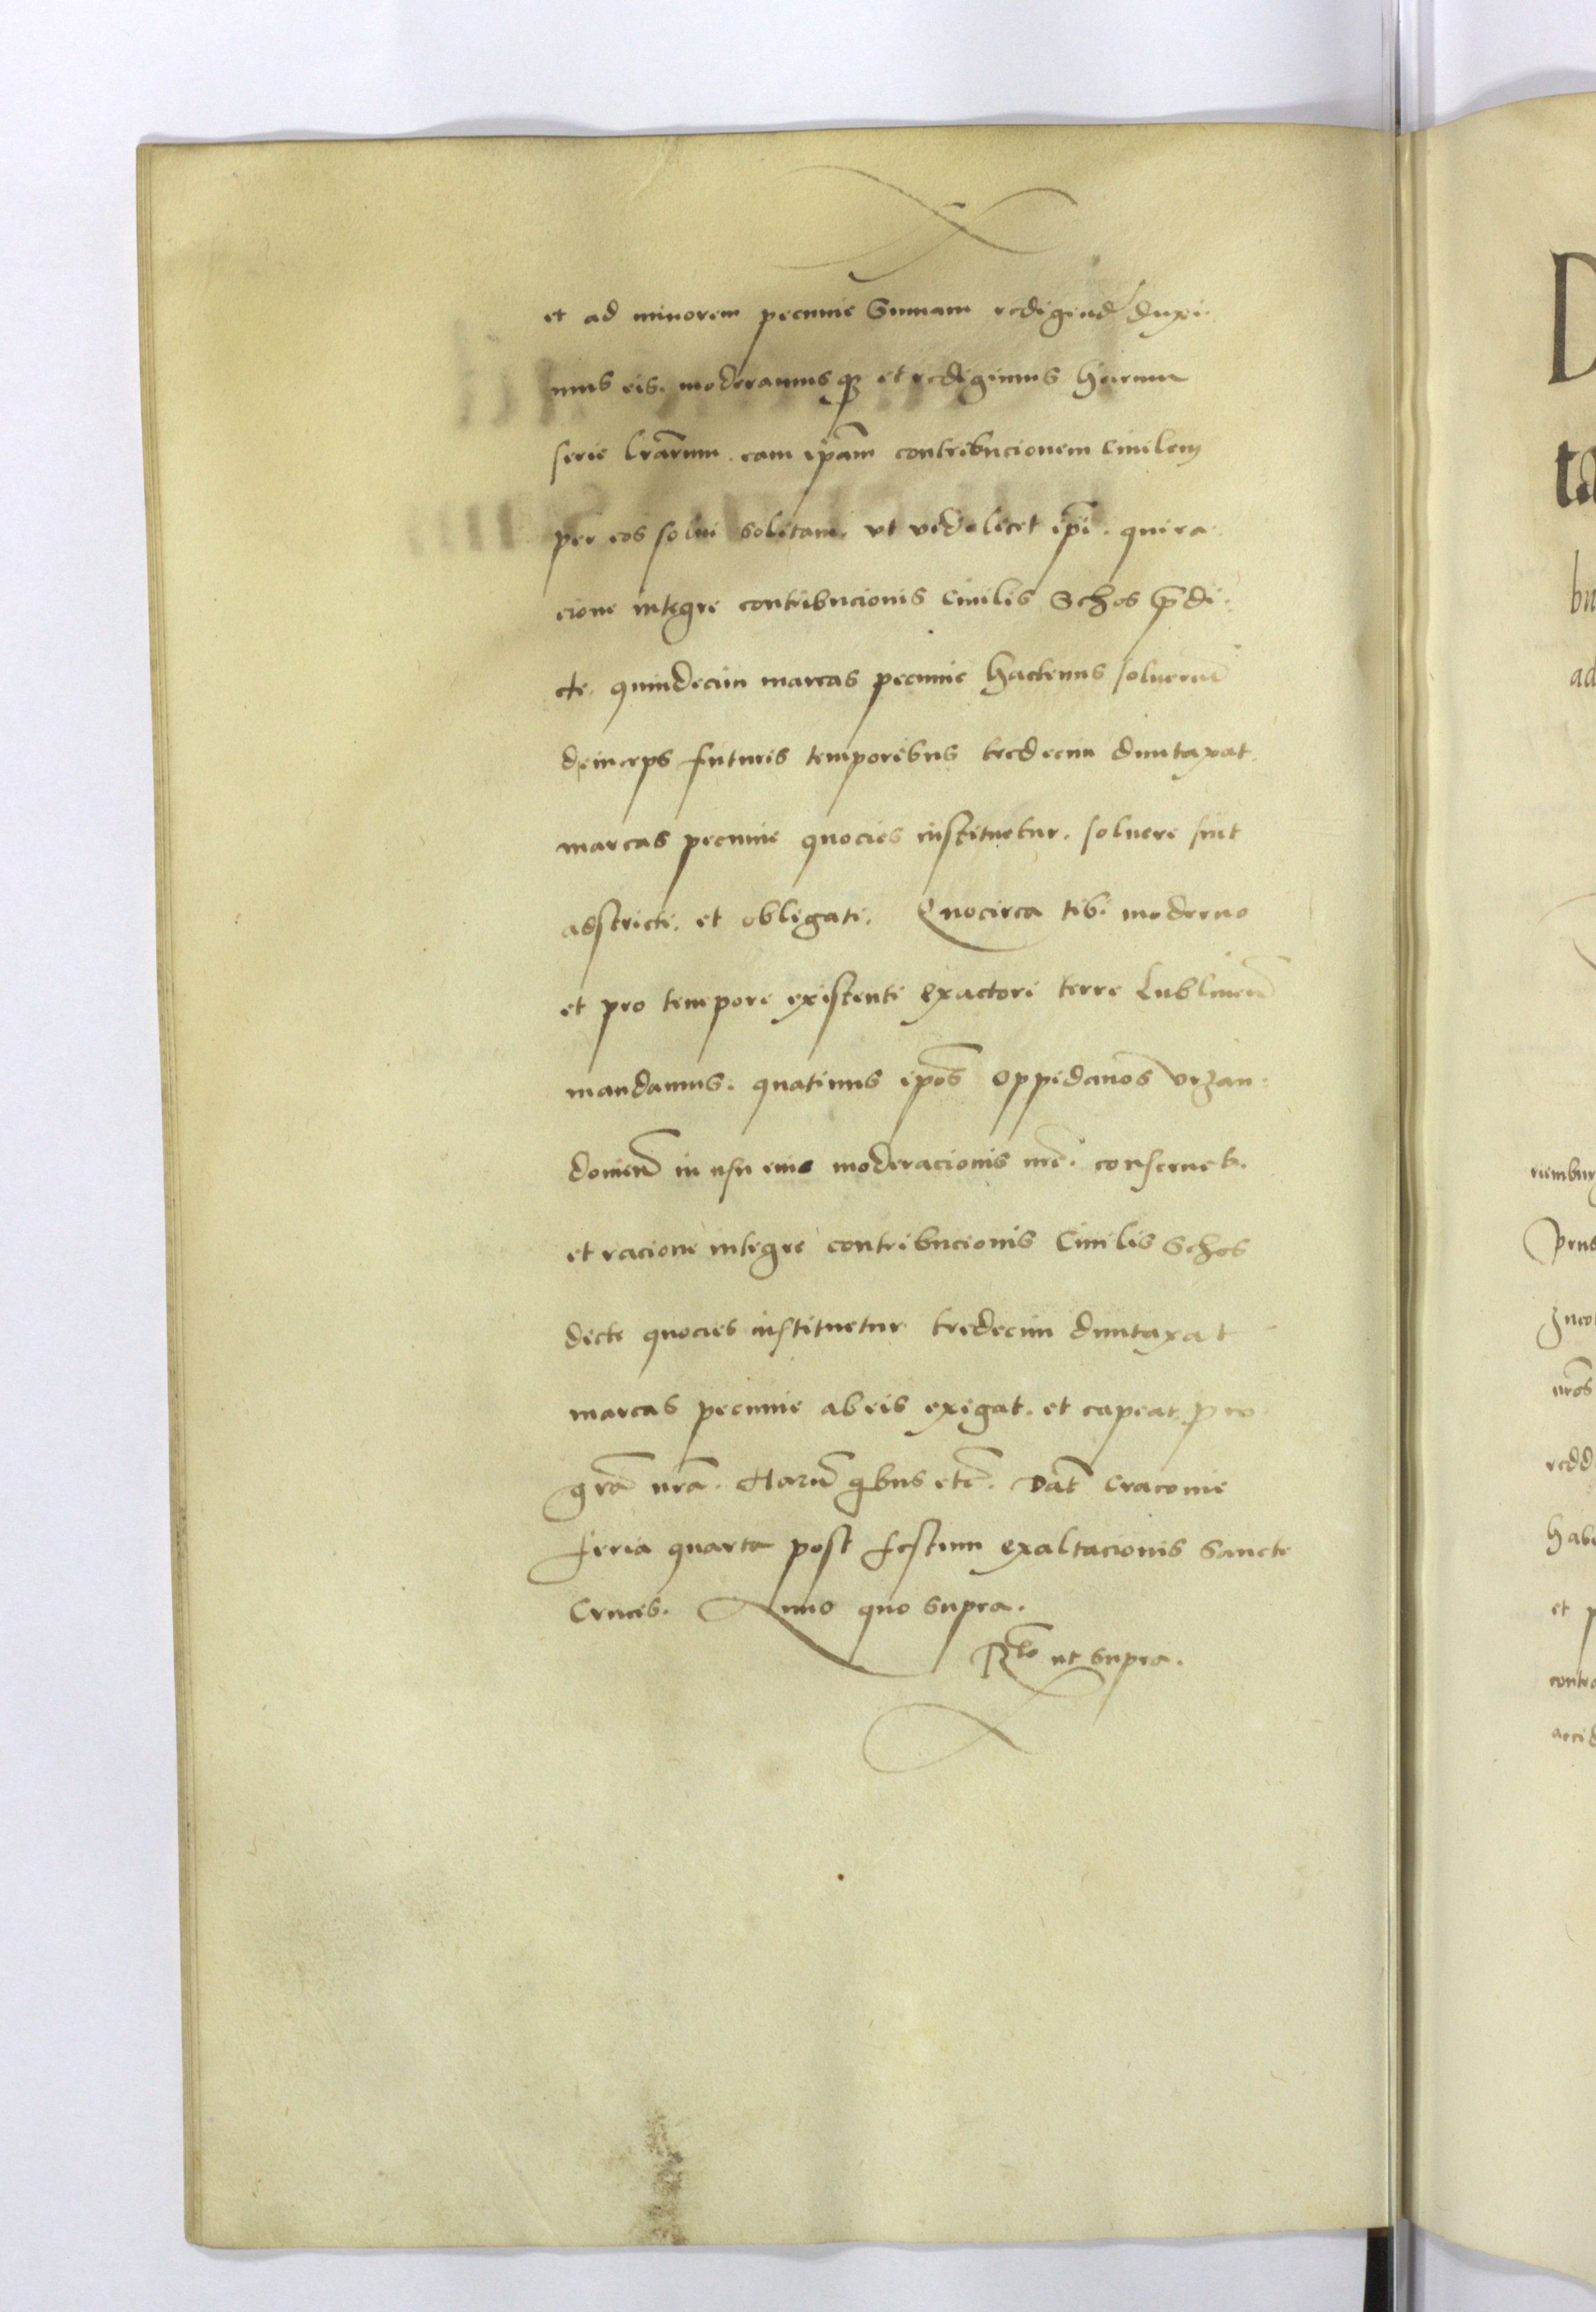 et ad minorem pecunie Summam redigend duxi
mus eis. moderamusq3 et redigimus harum
serie lrarum. eam ipam contribucionem Ciuilem
per eos solui solitam. vt videlicet ipi. qui ra
cione integre contribucionis Ciuilis Schos pdi:
cte. quindecim marcas pecunie hactenus soluerunt
deinceps futuris temporibus tredecim duntaxat.
marcas pecunie quocies instituetur. soluere sint
adstricti. et obligati. Quocirca tibi moderno
et pro tempore existenti exactori terre Lublinen
mandamus. quatinus ipos oppidanos vrzan:
douien in usu eius moderacionis nre. conseruet.
et racione integre contribucionis Ciuilis Schos
dicte quocies instituetur tredecim duntaxat
marcas pecunie ab eis exigat. et capeat pro
gra nra. Haru qbus etc. Dat Cracouie
feria quarta post festum exaltacionis Sancte
Crucis. Anno quo supra.
Rlo ut supra.
D
bu
ad
nros
redd
habe
et p
contra